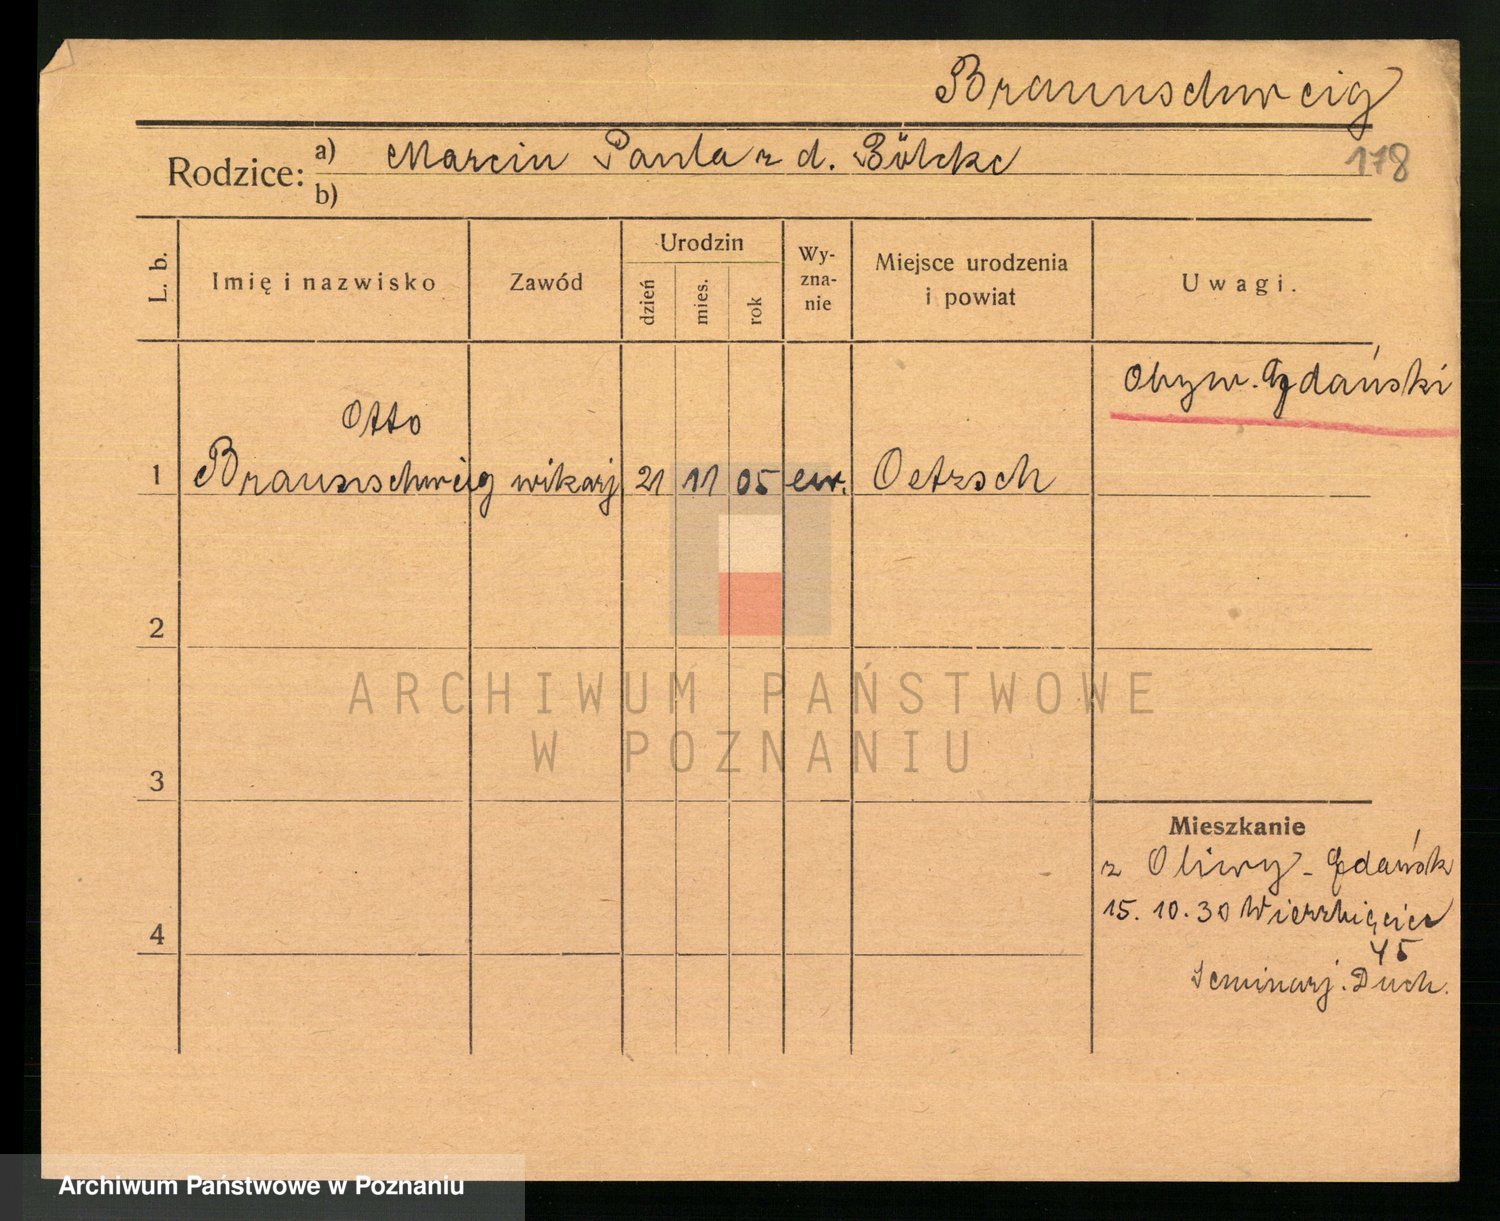 Braunschweig
178
Rodzice: a) Marcin Paula z d. Bölcke
b)
L. b.
Imię i nazwisko
Zawód
Urodzin
dzień
mies.
rok
Wy-
zna-
nie
Miejsce urodzenia
i powiat
Uwagi.
Obyw. Gdański
Otto
1 Braunschweig wikarj 21 11 05 ew. Oetzsch
2
ARCHIWUM PAŃSTWOWE
W POZNANIU
3
Mieszkanie
z Oliwy - Gdańsk
15. 10. 30 Wierzbięcice
45
4
Seminarj. Duch.
Archiwum Państwowe w Poznaniu